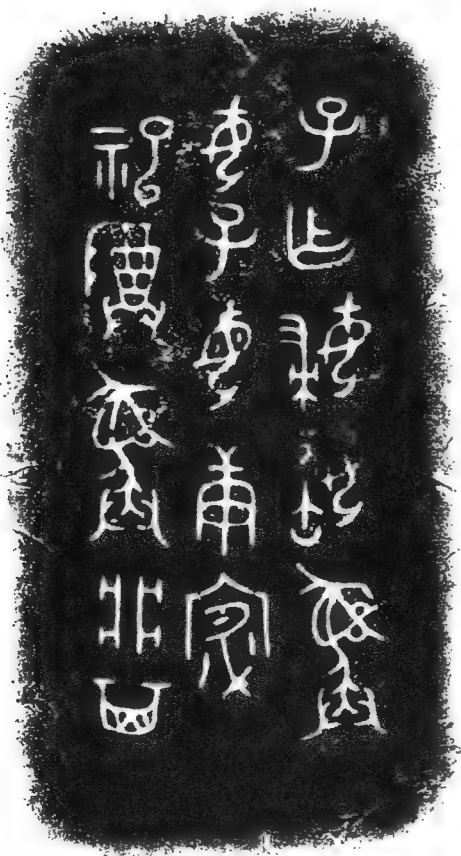 子乍婦彝
女子母庚宓
祀尊彝